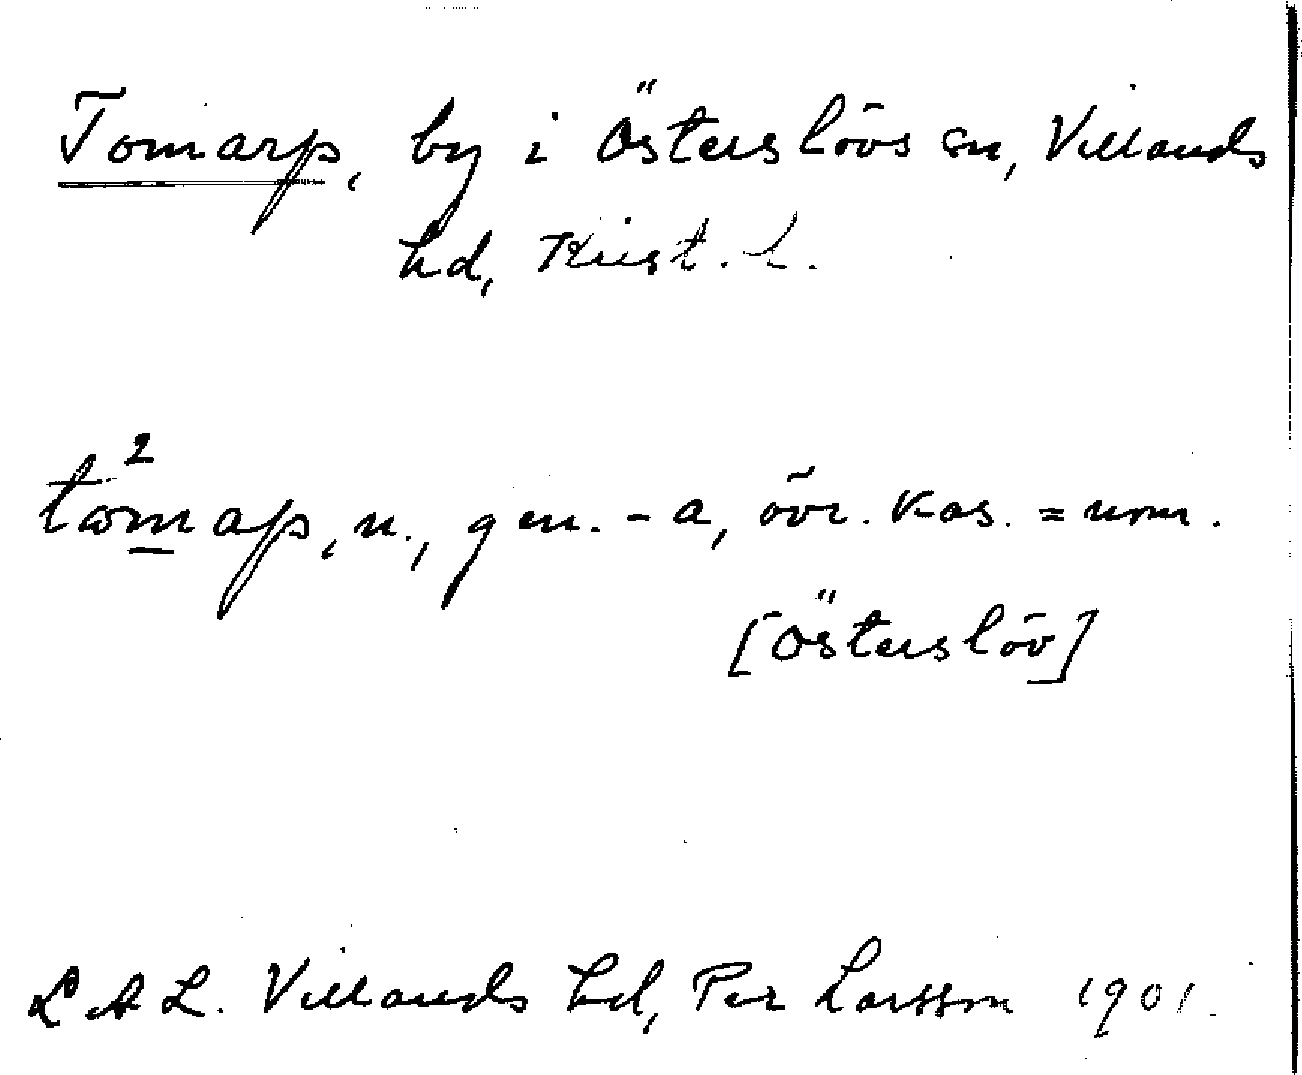 Tomarp, by i Österslövs sn, Villands
hd, Krist. L.
tω²map, n., gen. -a, övr. kas. = nom.
[Österslöv]
LAL. Villands hd, Per Larsson 1901.